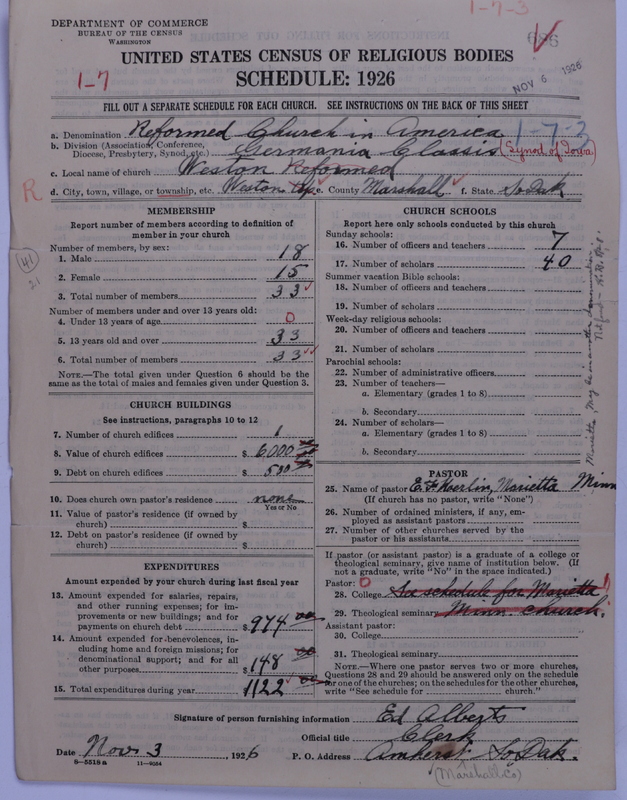 1-7-3
DEPARTMENT OF COMMERCE
BUREAU OF THE CENSUS
WASHINGTON
686
UNITED STATES CENSUS OF RELIGIOUS BODIES
1-7
SCHEDULE: 1926
NOV 6 1926
FILL OUT A SEPARATE SCHEDULE FOR EACH CHURCH. SEE INSTRUCTIONS ON THE BACK OF THIS SHEET
a. Denomination Reformed Church in America 1-7-3
b. Division (Association, Conference, Diocese, Presbytery, Synod, etc.) Germania Classis (Synod of Iowa)
c. Local name of church Weston Reformed
R
d. City, town, village, or township, etc. Weston Twp e. County Marshall f. State So Dak
MEMBERSHIP
Report number of members according to definition of
member in your church
Number of members, by sex:
1. Male 18
2. Female 15
41
21
3. Total number of members 33
Number of members under and over 13 years old:
4. Under 13 years of age 0
5. 13 years old and over 33
6. Total number of members 33
NOTE.—The total given under Question 6 should be the
same as the total of males and females given under Question 3.
CHURCH BUILDINGS
See instructions, paragraphs 10 to 12
7. Number of church edifices 1
8. Value of church edifices $ 6000 00
9. Debt on church edifices $ 500 00
10. Does church own pastor's residence none
Yes or No
11. Value of pastor's residence (if owned by
church) $
12. Debt on pastor's residence (if owned by
church) $
EXPENDITURES
Amount expended by your church during last fiscal year
13. Amount expended for salaries, repairs,
and other running expenses; for im-
provements or new buildings; and for
payments on church debt $ 974 00
14. Amount expended for benevolences, in-
cluding home and foreign missions; for
denominational support; and for all
other purposes $ 148 00
15. Total expenditures during year $ 1122 00
CHURCH SCHOOLS
Report here only schools conducted by this church
Sunday schools:
16. Number of officers and teachers 7
17. Number of scholars 40
Summer vacation Bible schools:
18. Number of officers and teachers
19. Number of scholars
Week-day religious schools:
20. Number of officers and teachers
21. Number of scholars
Parochial schools:
22. Number of administrative officers
23. Number of teachers—
a. Elementary (grades 1 to 8)
b. Secondary
24. Number of scholars—
a. Elementary (grades 1 to 8)
b. Secondary
PASTOR
25. Name of pastor E. F. Koerlin, Marietta Minn
(If church has no pastor, write "None")
26. Number of ordained ministers, if any, em-
ployed as assistant pastors
27. Number of other churches served by the
pastor or his assistants
If pastor (or assistant pastor) is a graduate of a college or
theological seminary, give name of institution below. (If
not a graduate, write "No" in the space indicated.)
Pastor: 0
28. College See schedule for Marietta
29. Theological seminary Minn. church.
Assistant pastor:
30. College
31. Theological seminary
NOTE.—Where one pastor serves two or more churches,
Questions 28 and 29 should be answered only on the schedule
for one of the churches; on the schedules for the other churches,
write "See schedule for church."
Signature of person furnishing information Ed Alberts
Official title Clerk
Date Nov 3, 1926
P. O. Address Amherst So Dak.
(Marshall Co)
8-5518a 11-9054